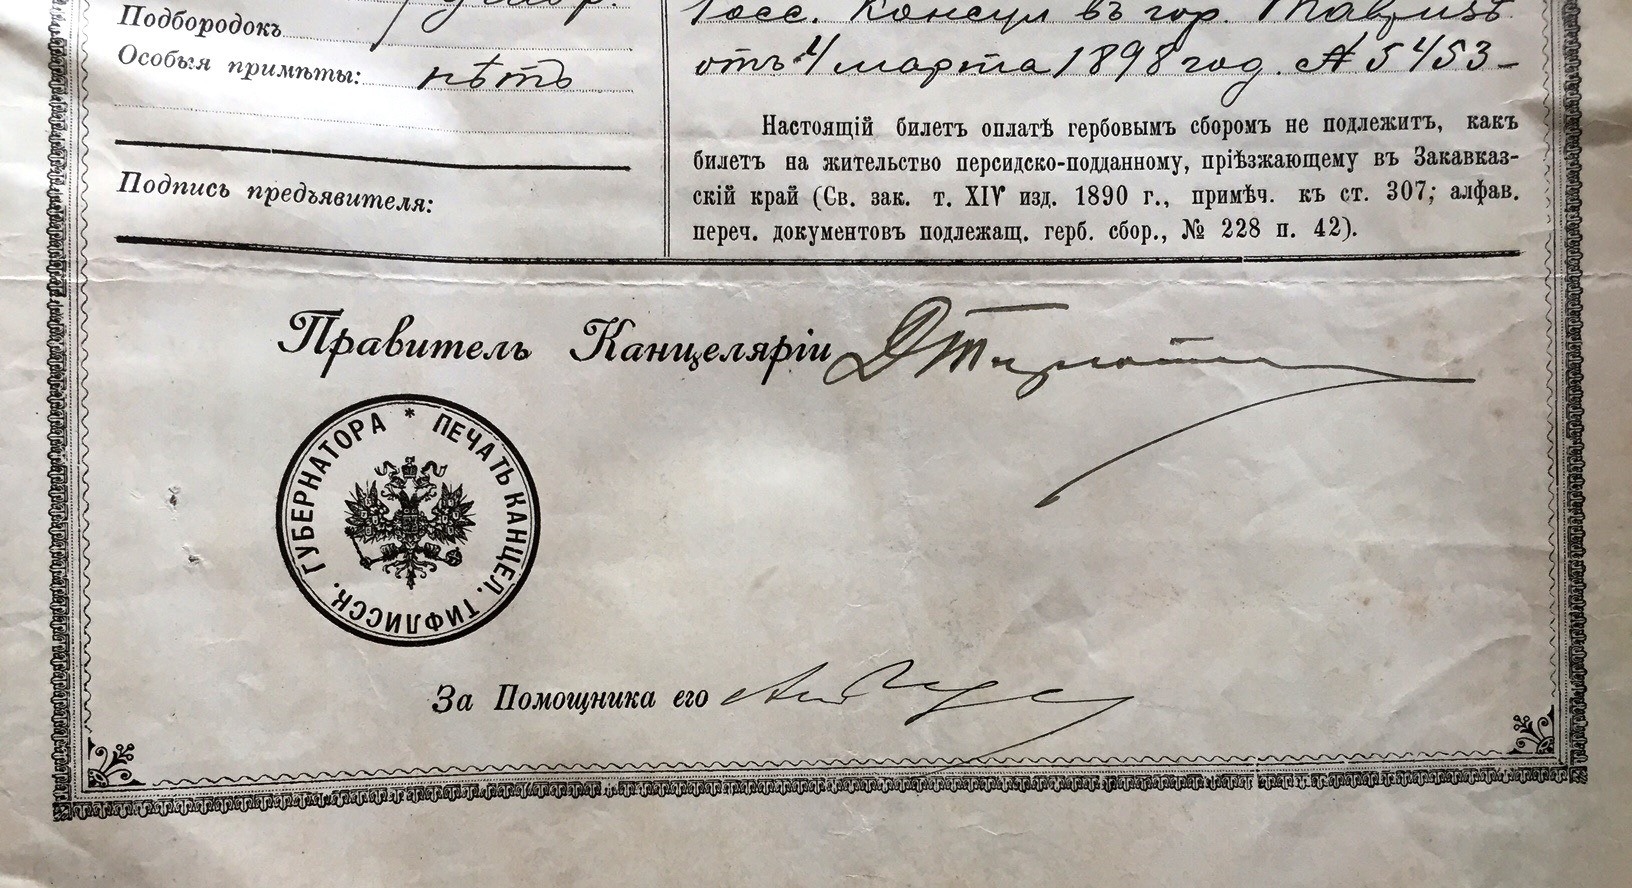 Подбородокъ
Особыя примѣты: нѣтъ
Подпись предъявителя:
Росс. Консул въ гор. Тавризѣ
отъ 4 марта 1898 год. № 5453
Настоящій билетъ оплатѣ гербовымъ сборомъ не подлежитъ, какъ
билетъ на жительство персидско-подданному, пріѣзжающему въ Закавказ-
скій край (Св. зак. т. XIV изд. 1890 г., примѣч. къ ст. 307; алфав.
переч. документовъ подлежащ. герб. сбор., № 228 п. 42).
Правитель Канцеляріи
* ПЕЧАТЬ КАНЦЕЛ. ТИФЛИССК. ГУБЕРНАТОРА
За Помощника его